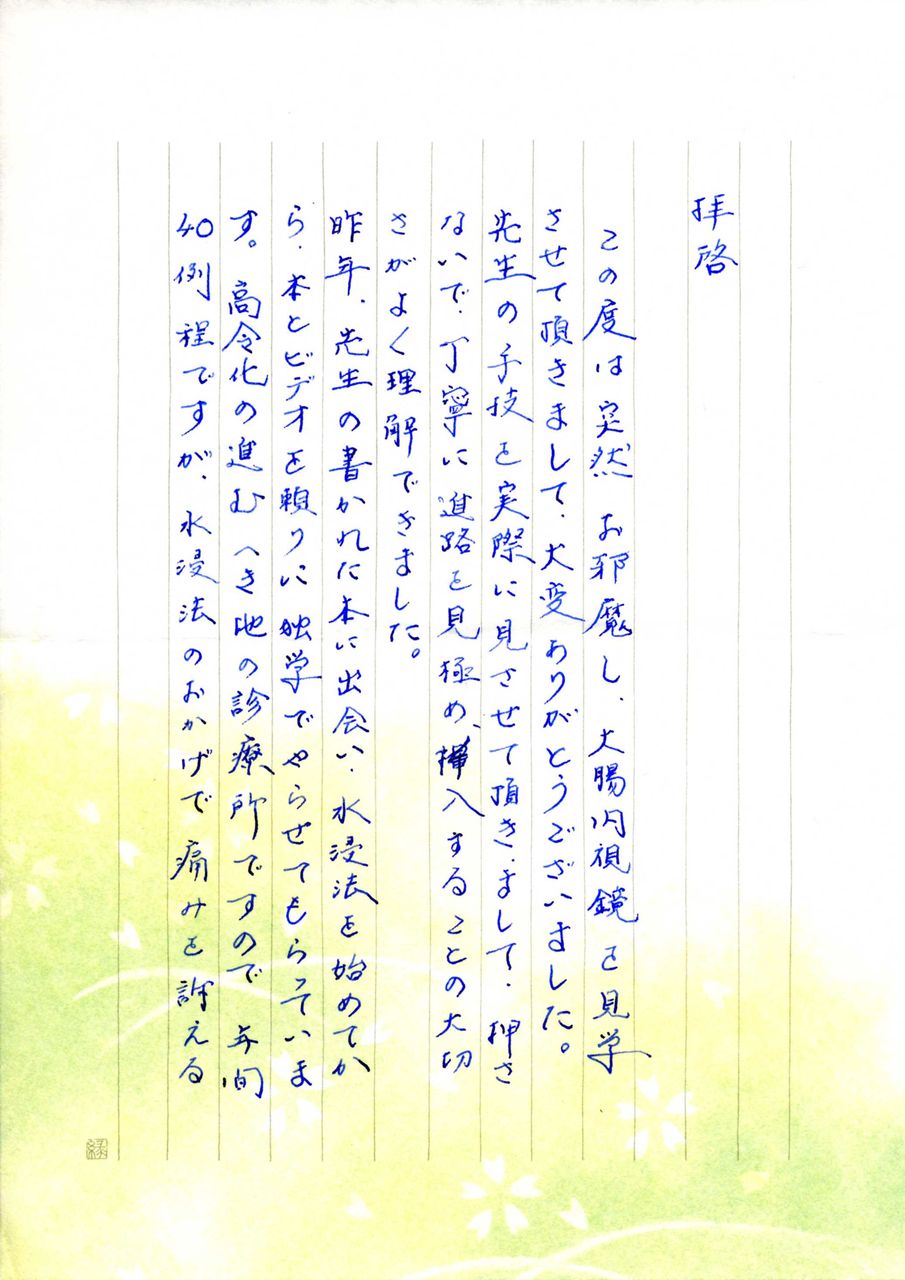 拝啓
この度は突然お邪魔し、大腸内視鏡を見学
させて頂きまして、大変ありがとうございました。
先生の手技を実際に見させて頂きまして、押さ
ないで、丁寧に進路を見極め、挿入することの大切
さがよく理解できました。
昨年、先生の書かれた本に出会い、水浸法を始めてか
ら、本とビデオを頼りに独学でやらせてもらっていま
す。高令化の進むへき地の診療所ですので年間
40例程ですが、水浸法のおかげで痛みを訴える
緑